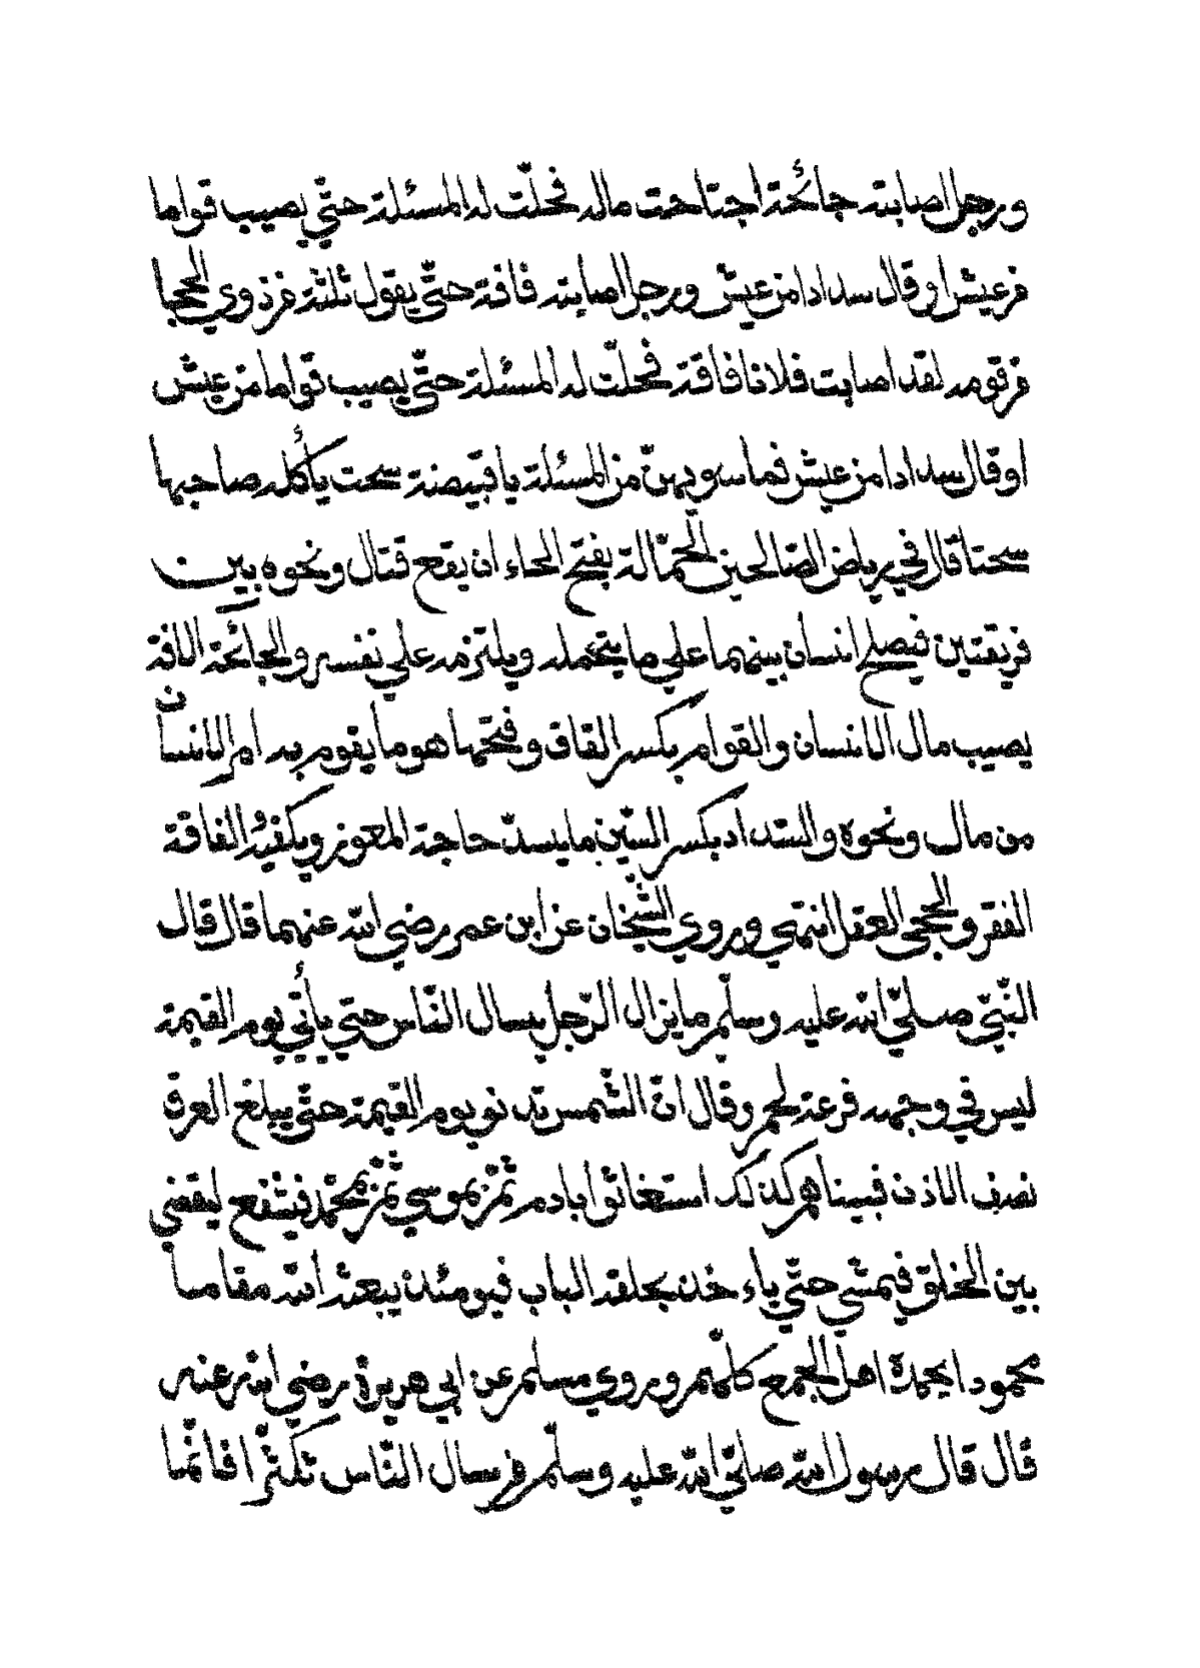 ورجل اصابته جائحة اجتاحت ماله فحلّت له المسئلة حتّي يصيب قواما
من عيش او قال سدادا من عيش ورجل اصابته فاقة حتّي يقول ثلثة من ذوي الحجا
من قومه لقد اصابت فلانا فاقة فحلّت له المسئلة حتّي يصيب قواما من عيش
او قال سدادا من عيش فما سويهنّ من المسئلة يا قبيصة سحت يأكله صاحبها
سحتا قال في رياض الصّالحين الحمّالة بفتح الحاء ان يقع قتال ونحوه بين
فريقتين فيصلح انسان بينهما علي ما يتحمله ويلتزمه علي نفسه والجائحة الافة
يصيب مال الانسان والقوام بكسر القاف وفتحها هو ما يقوم به امر الانسان
من مال ونحوه والسّداد بكسر السّين ما يسدّ حاجة المعوز ويكفيه والفاقة
الفقر والحجي العقل انتهي وروي الشّيخان عن ابن عمر رضي الله عنهما قال قال
النّبيّ صلّي الله عليه وسلّم ما يزال الرّجل يسال النّاس حتي يأتي يوم القيمة
ليس في وجهه مزعة لحم وقال انّ الشّمس تدنو يوم القيمة حتّي يبلغ العرق
نصف الاذن فبيناهم كذلك استغاثوا بادم ثمّ بموسي ثمّ بمحمّد فيشفع ليقضي
بين الخلق فيمشي حتّي ياءخذ بحلقة الباب فيومئذ يبعثه الله مقاما
محمودا يحمده اهل الجمع كلّهم وروي مسلم عن ابي هريرة رضي الله عنه
قال قال رسول الله صلّي الله عليه وسلّم من سال النّاس تكثّرا فانّما